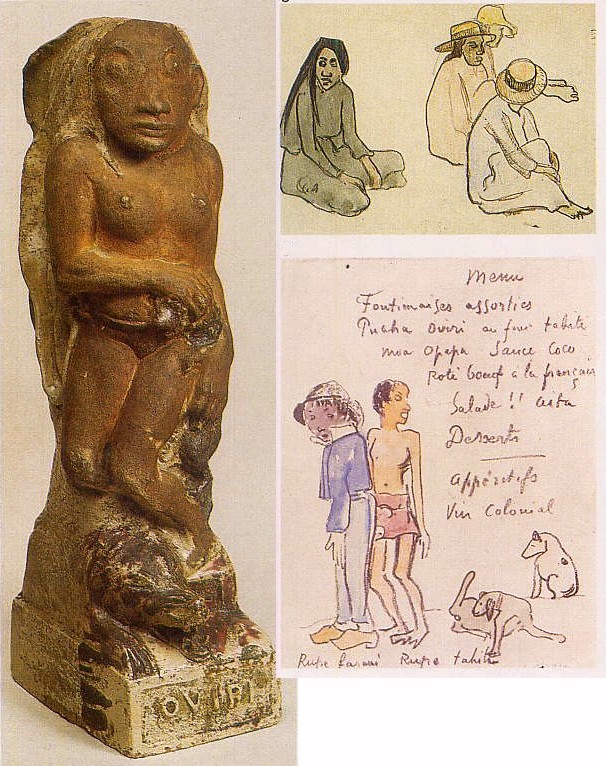 OVIRI
Menu
assorties
Puaha oviri au four tahiti
moa Opapa Sauce Coco
Roti boeuf à la français
Salade !!
Desserts
appéritifs
Vin Colonial
Rupe farani Rupe tahiti